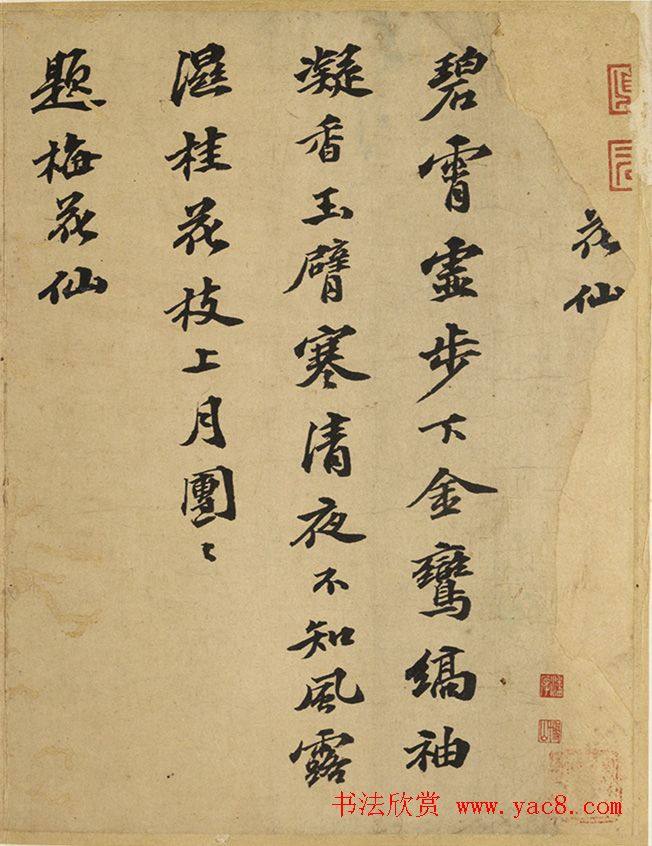 花仙
碧霄霊步下金鸞縞袖
凝香玉臂寒清夜不知風露
濕桂花枝上月團〻
題梅花仙
书法欣赏 www.yac8.com